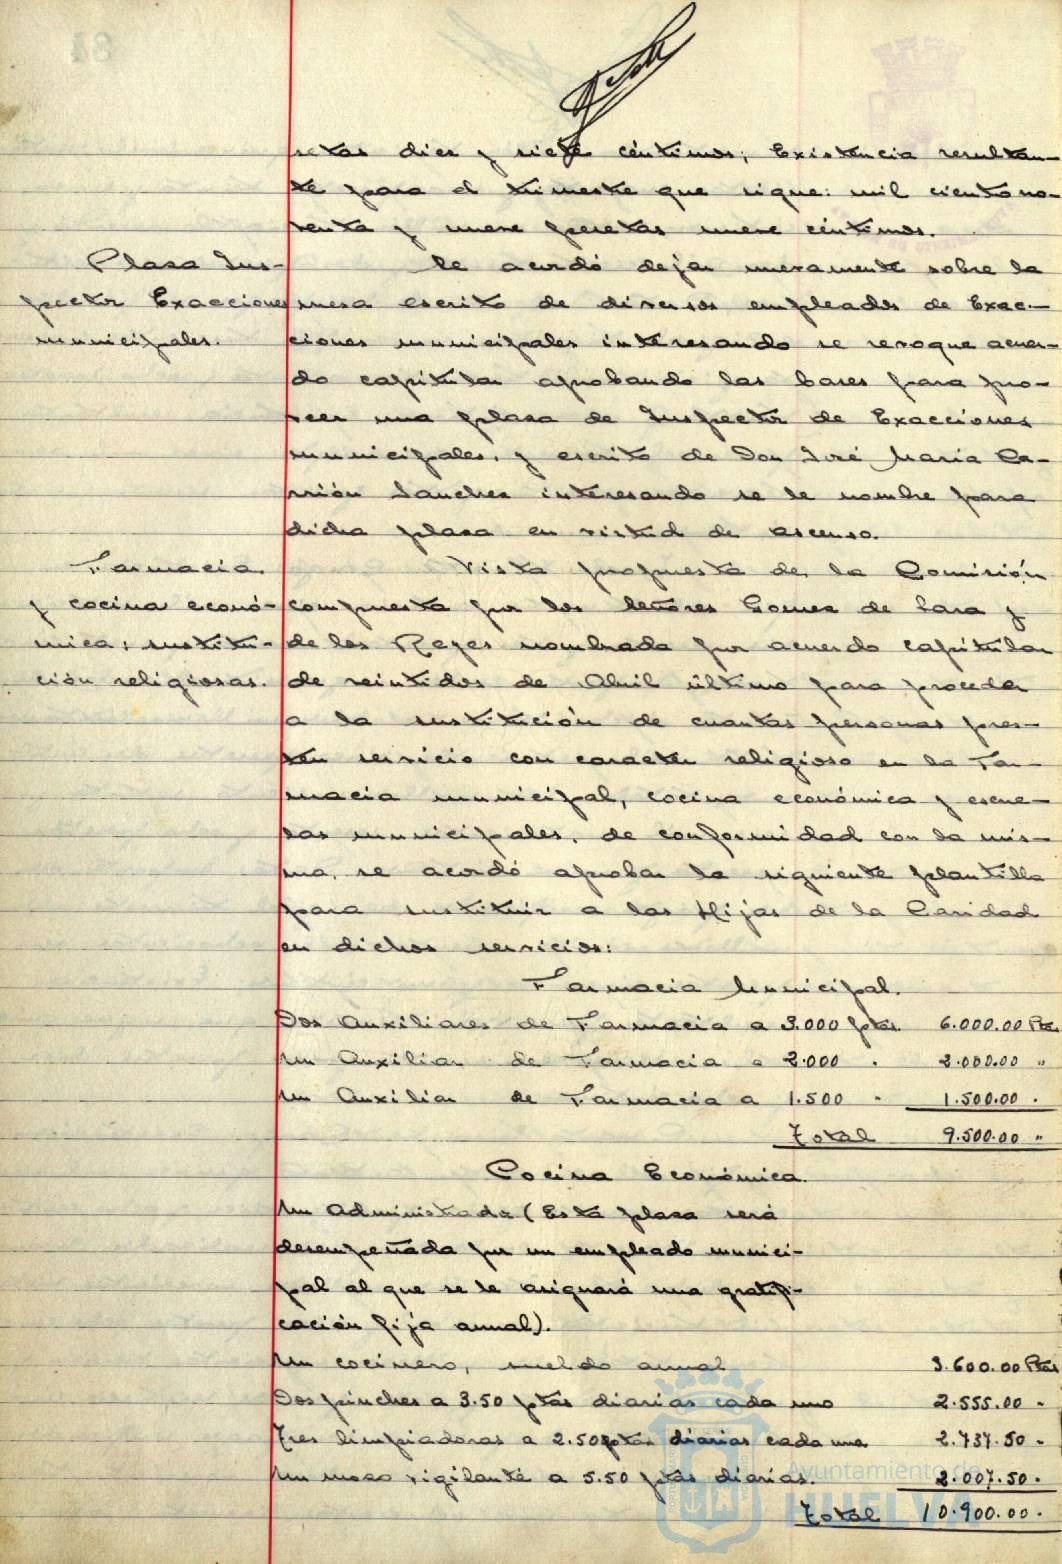 setas diez y siete céntimos; Existencia resultan-
te para el trimestre que sigue: mil ciento no-
venta y nueve pesetas nueve céntimos.
Plasa Ins-
pector Exacciones
municipales.
Se acordó dejar nuevamente sobre la
mesa escrito de diversos empleados de Exac-
ciones municipales interesando se revoque acuer-
do capitular aprobando las bases para pro-
veer una plasa de Inspector de Exacciones
municipales, y escrito de Don José María Ca-
rrión Sanchez interesando se le nombre para
dicha plasa en virtud de ascenso.
Farmacia
y cocina econó-
mica: sustitu-
ción religiosas.
Vista propuesta de la Comisión
compuesta por los Señores Gomez de Lara y
de los Reyes nombrada por acuerdo capitular
de veintidos de Abril último para proceder
a la sustitución de cuantas personas pres-
ten servicio con caracter religioso en la Far-
macia municipal, cocina económica y escue-
las municipales, de conformidad con la mis-
ma, se acordó aprobar la siguiente plantilla
para sustituir a las Hijas de la Caridad
en dichos servicios:
Farmacia Municipal.
Dos Auxiliares de Farmacia a 3.000 ptas 6.000.00 Ptas
Un Auxiliar de Farmacia a 2.000 " 2.000.00 "
Un Auxiliar de Farmacia a 1.500 " 1.500.00 "
Total 9.500.00 "
Cocina Económica.
Un Administrador (Esta plasa será
desempeñada por un empleado munici-
pal al que se le asignará una gratifi-
cación fija annal).
Un cocinero, sueldo annal 3.600.00 Ptas
Dos pinches a 3.50 ptas diarias cada uno 2.555.00 "
Tres limpiadoras a 2.50 ptas diarias cada una 2.737.50 "
Un moso vigilante a 5.50 ptas diarias. 2.007.50 "
Total 10.900.00 "
Ayuntamiento de
HUELVA